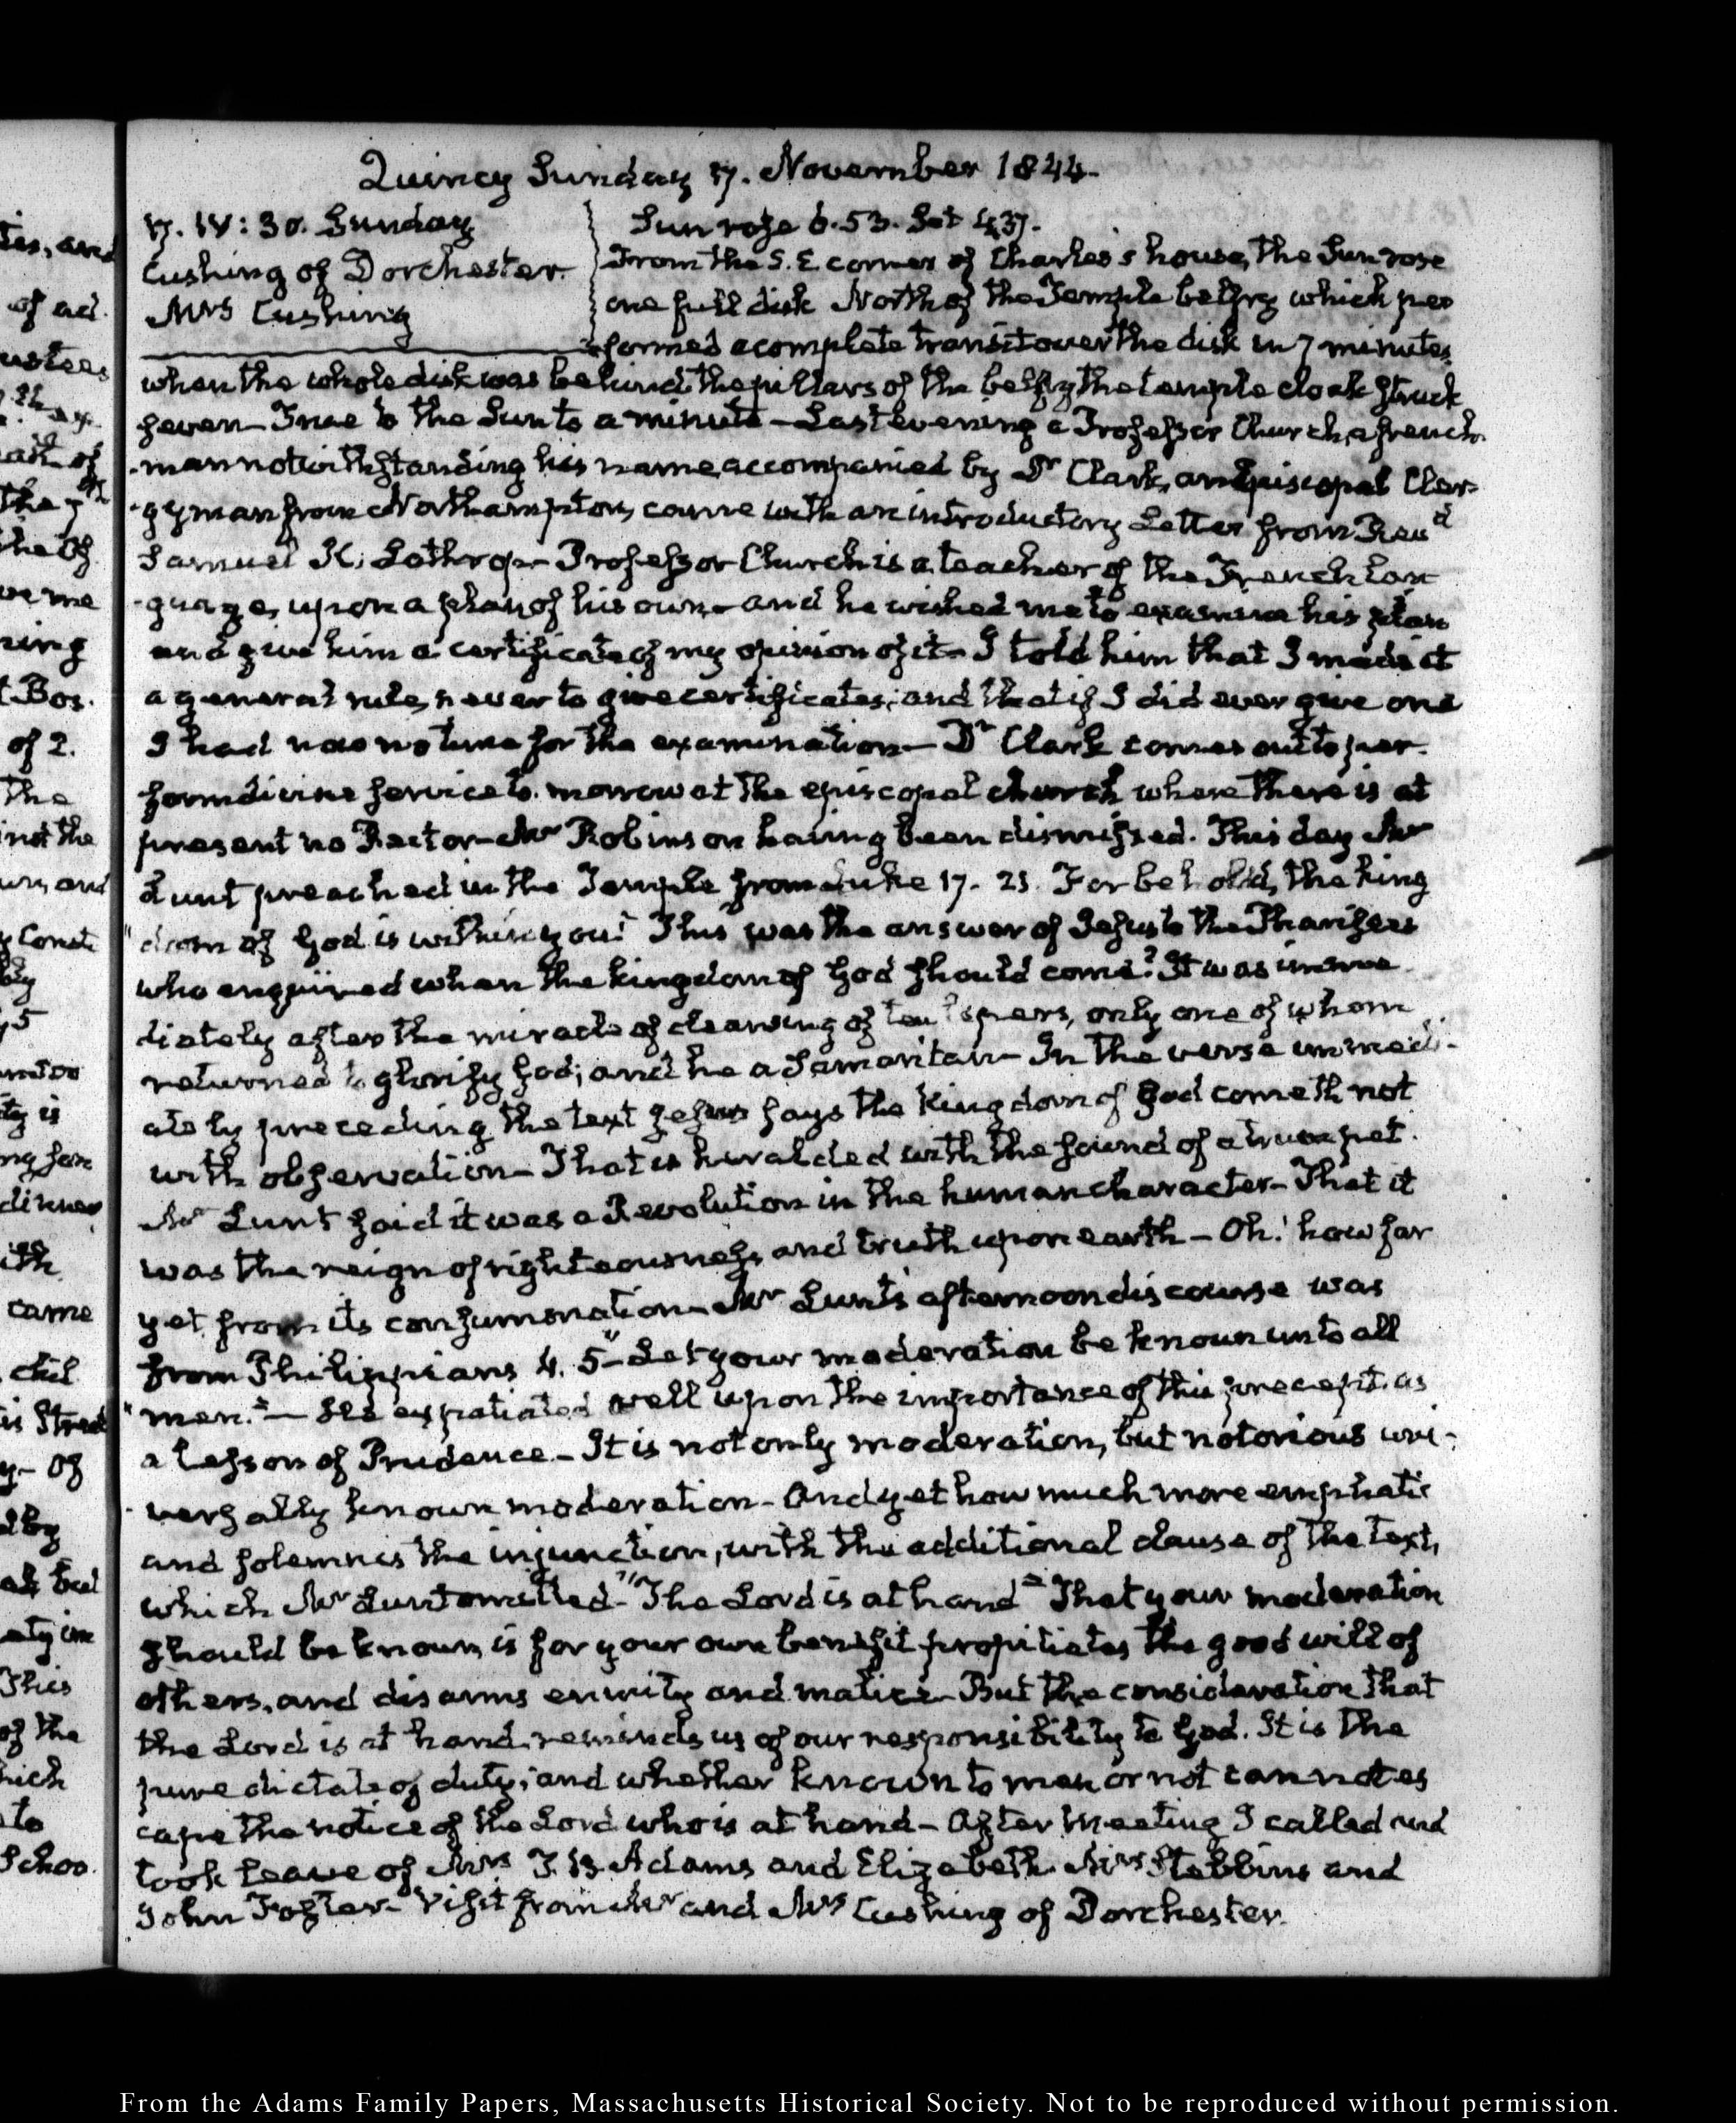 Quincy Sunday 17. November 1844.
17. IV: 30. Sunday
Cushing of Dorchester.
Mrs Cushing
Sun rose 6.53. Set 4.37.
From the S. E corner of Charles's house, the Sun rose
one full disk North of the Temple belfry which per
formed a complete transit over the disk in 7 minutes,
when the whole disk was behind the pillars of the belfry the temple clock struck
seven— True to the Sun to a minute— Last evening a Professor Church, a french
man notwithstanding his name accompanied by Dr Clark, an Episcopal Cler-
-gyman from Northampton, came with an introductory Letter from Revd
Samuel K. Lothrop— Professor Church is a teacher of the French lan
-guage, upon a plan of his own— and he wished me to examine his plan
and give him a certificate of my opinion of it— I told him that I made it
a general rule, never to give certificates; and that if I did ever give one
I had now no time for the examination— Dr Clark comes out to per-
form divine service to-morrow at the episcopal church where there is at
present no Rector— Mr Robinson having been dismissed. This day Mr
Lunt preached in the Temple from Luke 17. 21. For behold, the king
"dom of God is within you." This was the answer of Jesus to the Pharisees
who enquired when the kingdom of God should come? It was imme
diately after the miracle of cleansing of ten lepers, only one of whom
returned to glorify God; and he a Samaritan— In the verse immedi-
ately preceding the text Jesus says the kingdom of God cometh not
with observation— That is heralded with the sound of a trumpet.
Mr Lunt said it was a Revolution in the human character— That it
was the reign of righteousness, and truth upon earth— Oh! how far
yet from its consummation— Mr Lunt's afternoon discourse was
from Philippians 4. 5 "Let your moderation be known unto all
"men."— He expatiated well upon the importance of this precept as
a Lesson of Prudence— It is not only moderation, but notorious uni-
-versally known moderation— And yet how much more emphatic
and solemn is the injunction, with the additional clause of the text,
which Mr Lunt omitted— "The Lord is at hand" That your moderation
should be known, is for your own benefit propitiates the good will of
others, and disarms enmity and malice— But the consideration that
the Lord is at hand, reminds us of our responsibility to God. It is the
pure dictate of duty; and whether known to men or not cannot es
cape the notice of the Lord who is at hand— After Meeting I called and
took leave of Mrs T. B. Adams and Elizabeth Mrs Stebbins and
John Foster— Visit from Mr and Mrs Cushing of Dorchester.
From the Adams Family Papers, Massachusetts Historical Society. Not to be reproduced without permission.